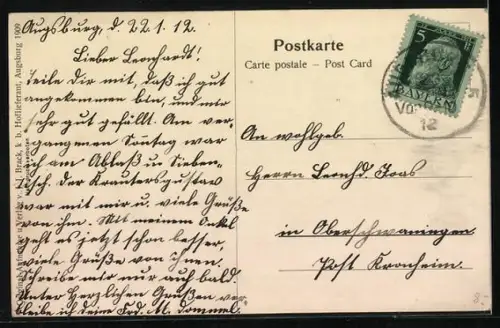 Augsburg, d. 22.1.12.
Lieber Leonhardt!
Teile Dir mit, daß ich gut
angekommen bin, und mir
sehr gut gefällt. Am ver-
gangenen Sonntag war
ich am Ablaß in Sieben-
tisch. Der Krautersgustav
war mit mir u. viele Grüße
von ihm. Mit meinem Onkel
geht es jetzt schon besser,
viele Grüße von Ihnen.
Schreibe mir nur auch bald.
Unter Herzlichen Grüßen ver-
bleibe ich deine Frd. M. Dommel.
Postkarte
Carte postale – Post Card
An wohlgeb.
Herrn Leonhd. Joas
in Oberschwaningen
Post Kronheim.
5
BAYERN
12
Brack, k. b. Hoflieferant, Augsburg 1909